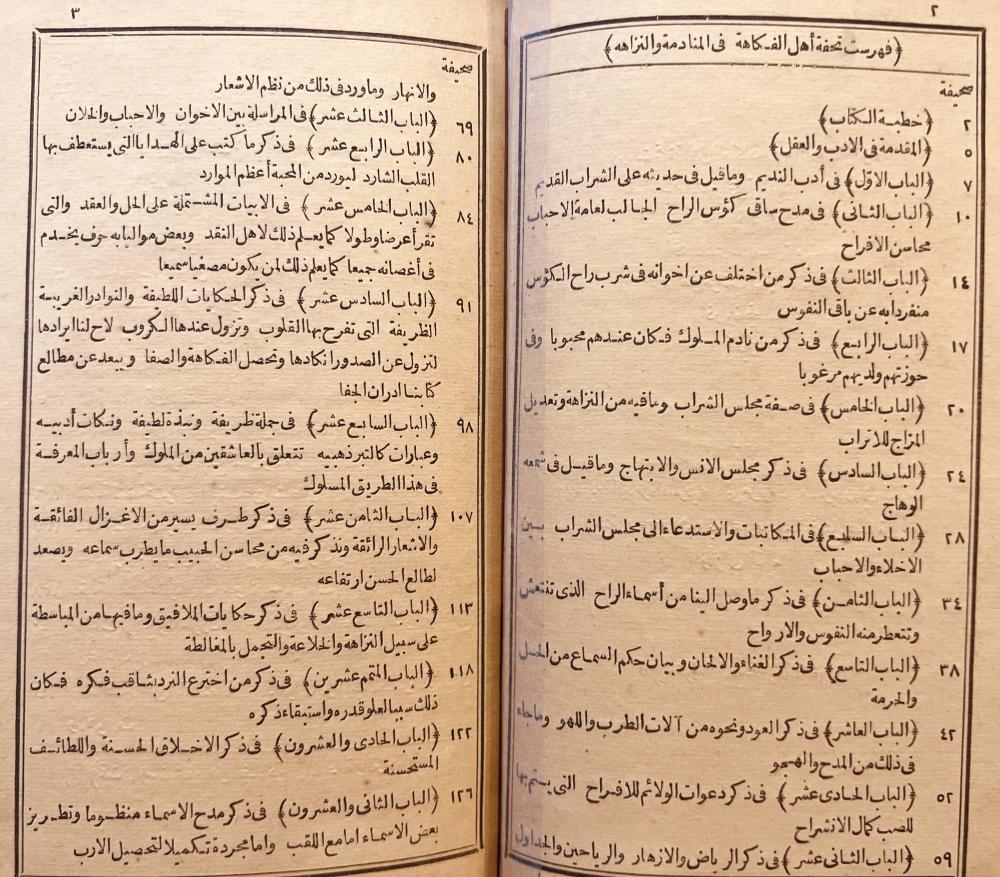 ٢
﴿فهرست تحفة أهل الفكاهة فى المنادمة والنزاهه﴾
صحيفة
٢ ﴿خطبة الكتاب﴾
٥ ﴿المقدمة فى الادب والعقل﴾
٧ ﴿الباب الاوّل﴾ فى أدب النديم وماقيل فى حديثه على الشراب القديم
١٠ ﴿الباب الثانى﴾ فى مدح ساقى كؤس الراح الجالب لعامة الاحباب
محاسن الافراح
١٤ ﴿الباب الثالث﴾ فى ذكر من اختلف عن اخوانه فى شرب راح الكؤس
منفردا به عن باقى النفوس
١٧ ﴿الباب الرابع﴾ فى ذكر من نادم الملوك فكان عندهم محبوبا وفى
حوزتهم ولديهم مرغوبا
٢٠ ﴿الباب الخامس﴾ فى صفة مجلس الشراب ومافيه من النزاهة وتعديل
المزاج للاتراب
٢٤ ﴿الباب السادس﴾ فى ذكر مجلس الانس والابتهاج وماقيل فى شمعه
الوهاج
٢٨ ﴿الباب السابع﴾ فى المكاتبات والاستدعاء الى مجلس الشراب بين
الاخلاء والاحباب
٣٤ ﴿الباب الثامن﴾ فى ذكر ماوصل الينا من أسماء الراح الذى تنتعش
وتتعطر منه النفوس والارواح
٣٨ ﴿الباب التاسع﴾ فى ذكر الغناء والالحان وبيان حكم السماع من الحل
والحرمة
٤٢ ﴿الباب العاشر﴾ فى ذكر العود ونحوه من آلات الطرب واللهو وماجاء
فى ذلك من المدح والهجو
٥٢ ﴿الباب الحادى عشر﴾ فى ذكر دعوات الولائم للافراح التى يتم بها
للصب كمال الانشراح
٥٩ ﴿الباب الثانى عشر﴾ فى ذكر الرياض والازهار والرياحين والجداول
٣
صحيفة
والانهار وماورد فى ذلك من نظم الاشعار
٦٩ ﴿الباب الثالث عشر﴾ فى المراسلة بين الاخوان والاحباب والخلان
٨٠ ﴿الباب الرابع عشر﴾ فى ذكر ما كتب على الهدايا التى يستعطف بها
القلب الشارد ليورد من المحبة أعظم الموارد
٨٤ ﴿الباب الخامس عشر﴾ فى الابيات المشتملة على الحل والعقد والتى
تقرأ عرضا وطولا كما يعلم ذلك لاهل النقد وبعض مواليا به حرف يخدم
فى أغصانه جميعا كما يعلم ذلك لمن يكون مصغيا سميعا
٩١ ﴿الباب السادس عشر﴾ فى ذكر الحكايات اللطيفة والنوادر الغريبة
الظريفة التى تفرح بها القلوب وتزول عندها الكروب لاح لنا ايرادها
لنزول عن الصدور انكادها وتحصل الفكاهة والصفا ويبعد عن مطالع
كتابنا ادران الجفا
٩٨ ﴿الباب السابع عشر﴾ فى جملة ظريفة ونبذة لطيفة ونكات أدبيه
وعبارات كالتبر ذهبيه تتعلق بالعاشقين من الملوك وأرباب المعرفة
فى هذا الطريق المسلوك
١٠٧ ﴿الباب الثامن عشر﴾ فى ذكر طرف يسير من الاغزال الفائقة
والاشعار الرائقة ونذكر فيه من محاسن الحبيب ما يطرب سماعه ويصعد
لطالع الحسن ارتفاعه
١١٣ ﴿الباب التاسع عشر﴾ فى ذكر حكايات الملافيق ومافيها من المباسطة
على سبيل النزاهة والخلاعة والتجمل بالمغالطة
١١٨ ﴿الباب المتمم عشرين﴾ فى ذكر من اخترع النرد بثاقب فكره فكان
ذلك سببا لعلو قدره واستبقاء ذكره
١٢٢ ﴿الباب الحادى والعشرون﴾ فى ذكر الاخلاق الحسنة واللطائف
المستحسنة
١٢٦ ﴿الباب الثانى والعشرون﴾ فى ذكر مدح الاسماء منظوما وتطريز
بعض الاسماء امامع اللقب واما مجردة تكميلا لتحصيل الارب